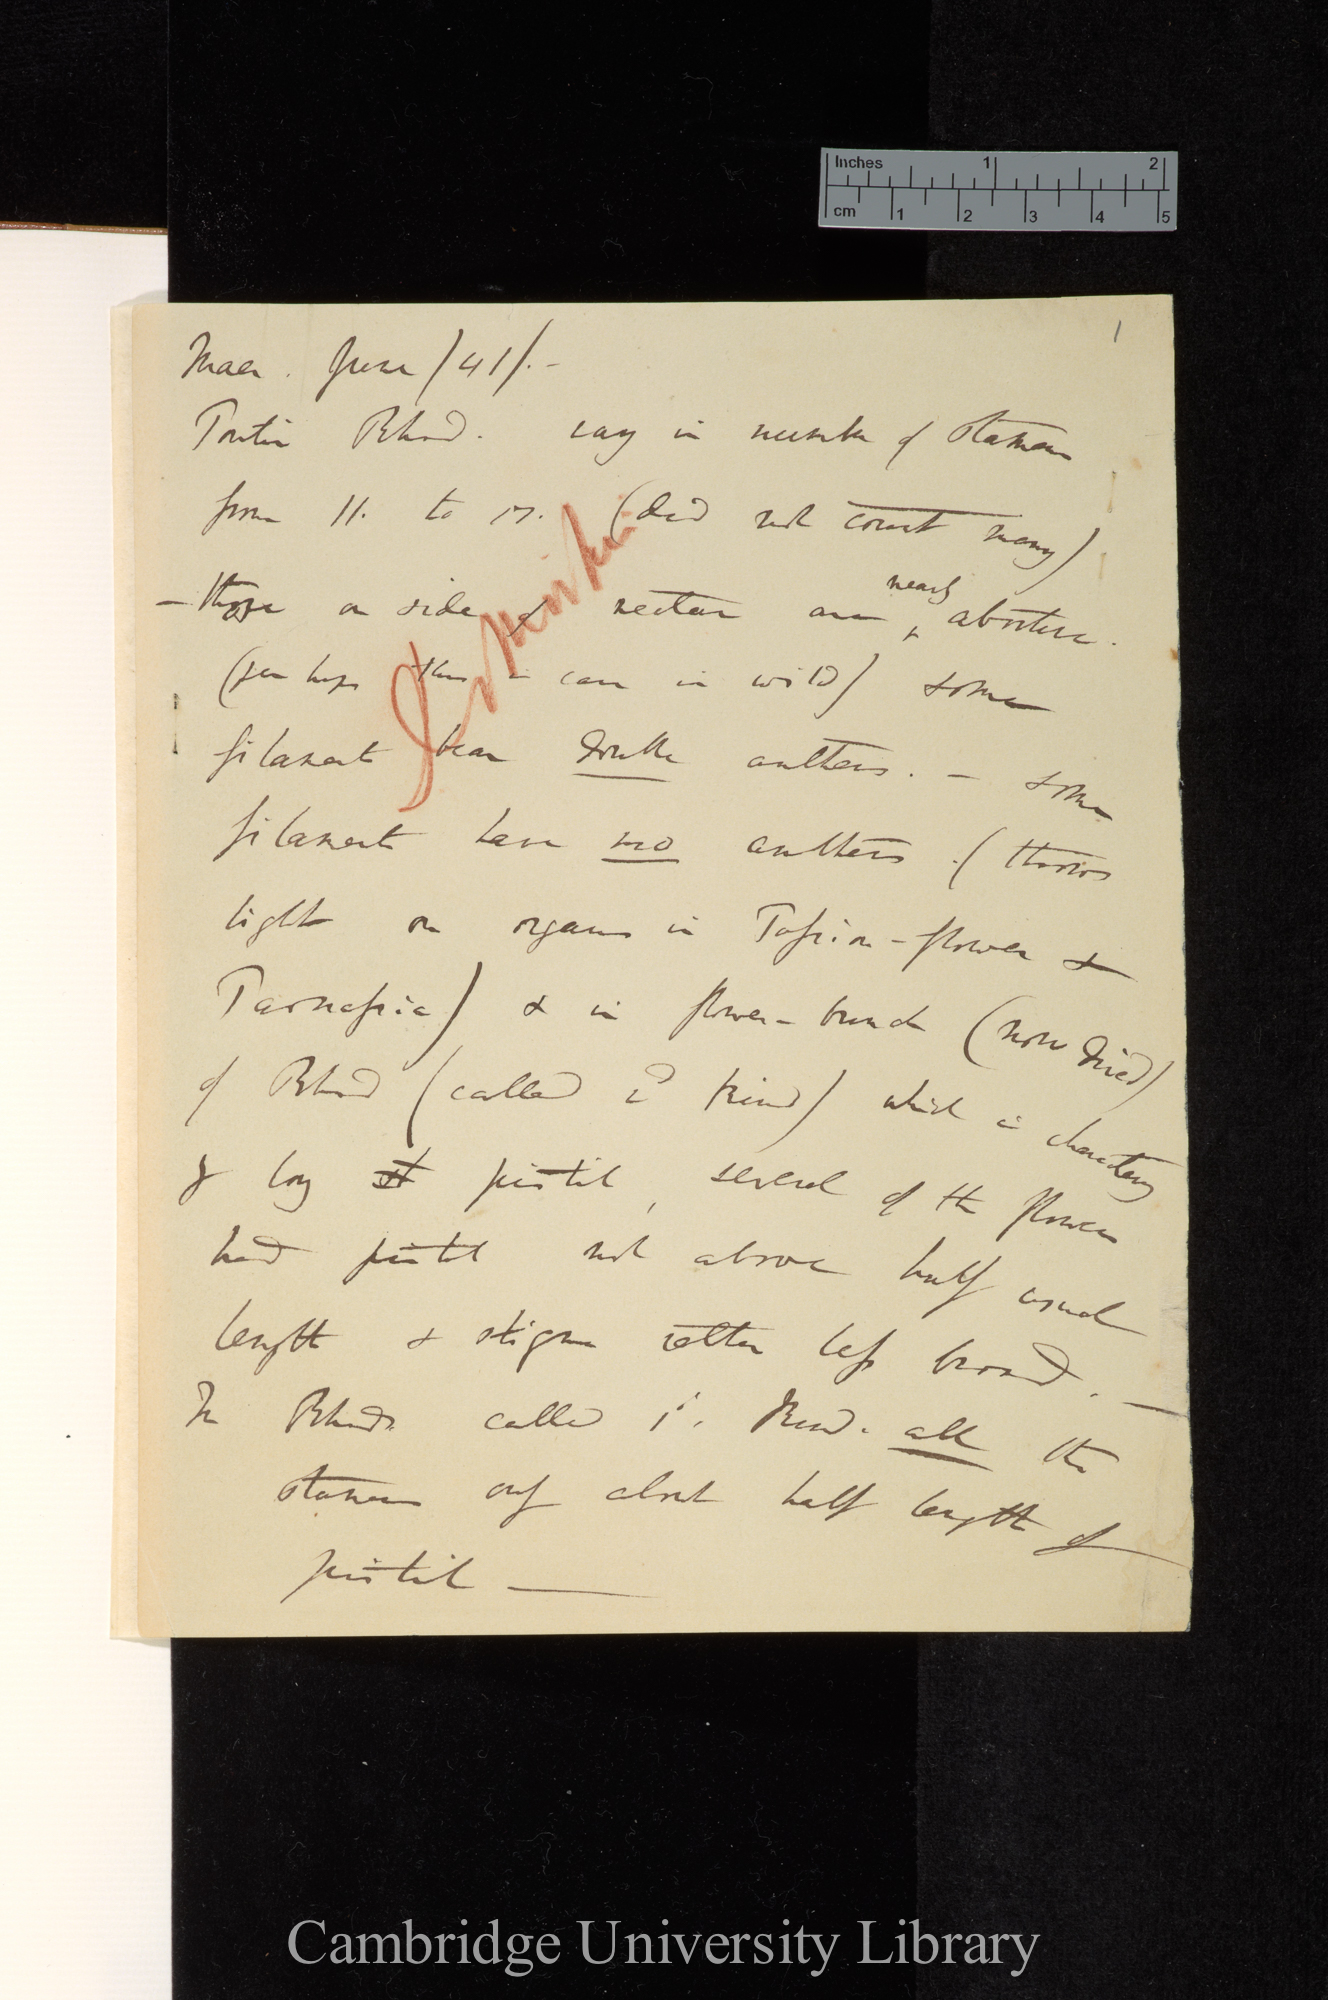 Inches 1 2
cm 1 2 3 4 5
1
Maer. June /41/. –
Pontic Rhod. vary in number of stamens
from 11. to 17. (did not count many)
– those on side of nectar are nearly abortive.
(perhaps this is case in wild) some
filament bear double anthers. – some
filaments have no anthers. (throws
light on organs in Passion-flower &
Parnassia) & in flower-bunch (now dried)
of Rhod (called 2d Kind) which is character
by long st pistil, several of the flowers
had pistil not above half usual
length & stigma rather less broad. —
In Rhod. called 1st. Kind. all the
stamens only about half length of
pistil —
Cambridge University Library